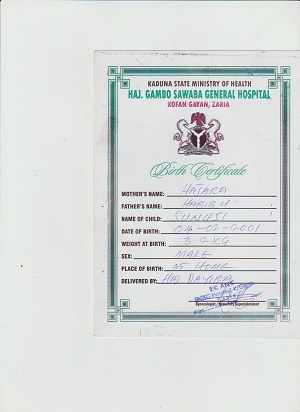 KADUNA STATE MINISTRY OF HEALTH
HAJ. GAMBO SAWABA GENERAL HOSPITAL
KOFAN GAYAN, ZARIA
Birth Certificate
MOTHER'S NAME: HAJARA
FATHER'S NAME: HABIBU
NAME OF CHILD: SUNUSI
DATE OF BIRTH: 04-02-2001
WEIGHT AT BIRTH: 3.2KG
SEX: MALE
PLACE OF BIRTH: AT HOME
DELIVERED BY:
Gynecologist / Midwifery Superintendent